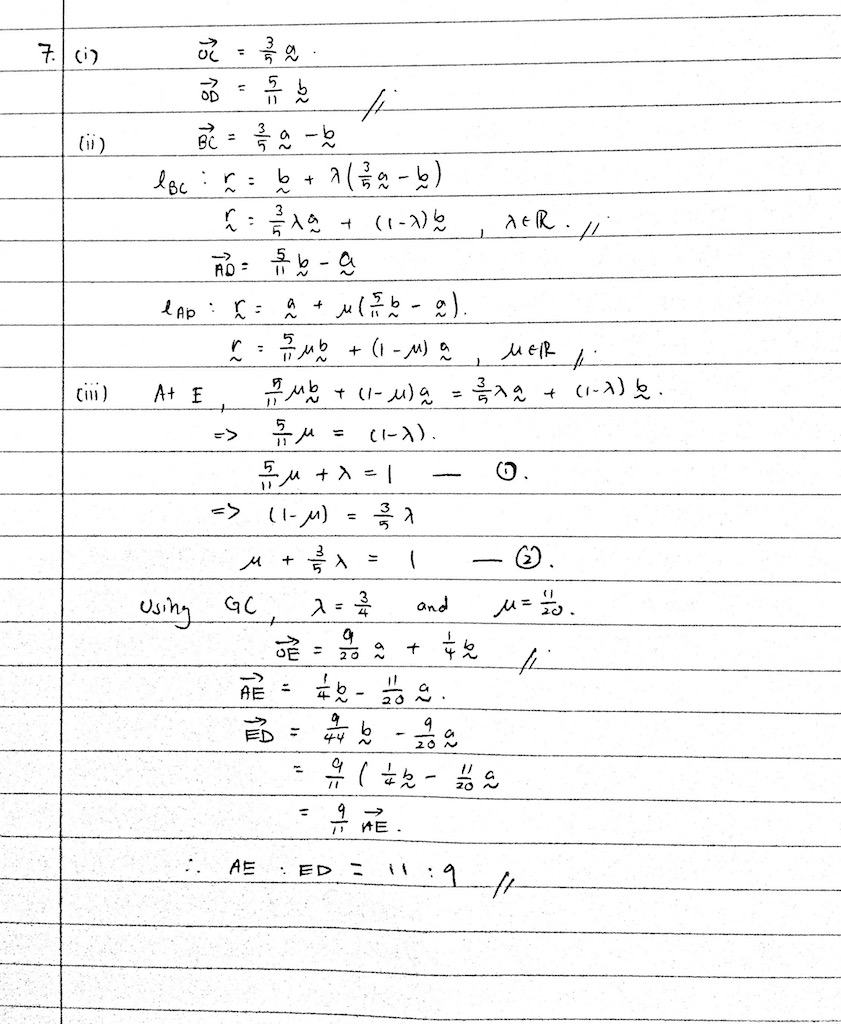 7. (i) →OC = 3/5 a̰ .
→OD = 5/11 b̰ //
(ii) →BC = 3/5 a̰ - b̰
l_BC : r̰ = b̰ + λ(3/5 a̰ - b̰)
r̰ = 3/5 λa̰ + (1-λ)b̰ , λ∈ℝ . //
→AD = 5/11 b̰ - a̰
l_AD : r̰ = a̰ + μ(5/11 b̰ - a̰).
r̰ = 5/11 μb̰ + (1-μ) a̰ , μ∈ℝ //
(iii) At E , 5/11 μb̰ + (1-μ)a̰ = 3/5 λa̰ + (1-λ) b̰ .
=> 5/11 μ = (1-λ).
5/11 μ + λ = 1 — ①.
=> (1-μ) = 3/5 λ
μ + 3/5 λ = 1 — ②.
Using GC, λ = 3/4 and μ = 11/20 .
→OE = 9/20 a̰ + 1/4 b̰ //
→AE = 1/4 b̰ - 11/20 a̰ .
→ED = 9/44 b̰ - 9/20 a̰
= 9/11 ( 1/4 b̰ - 11/20 a̰
= 9/11 →AE .
∴ AE : ED = 11 : 9 //